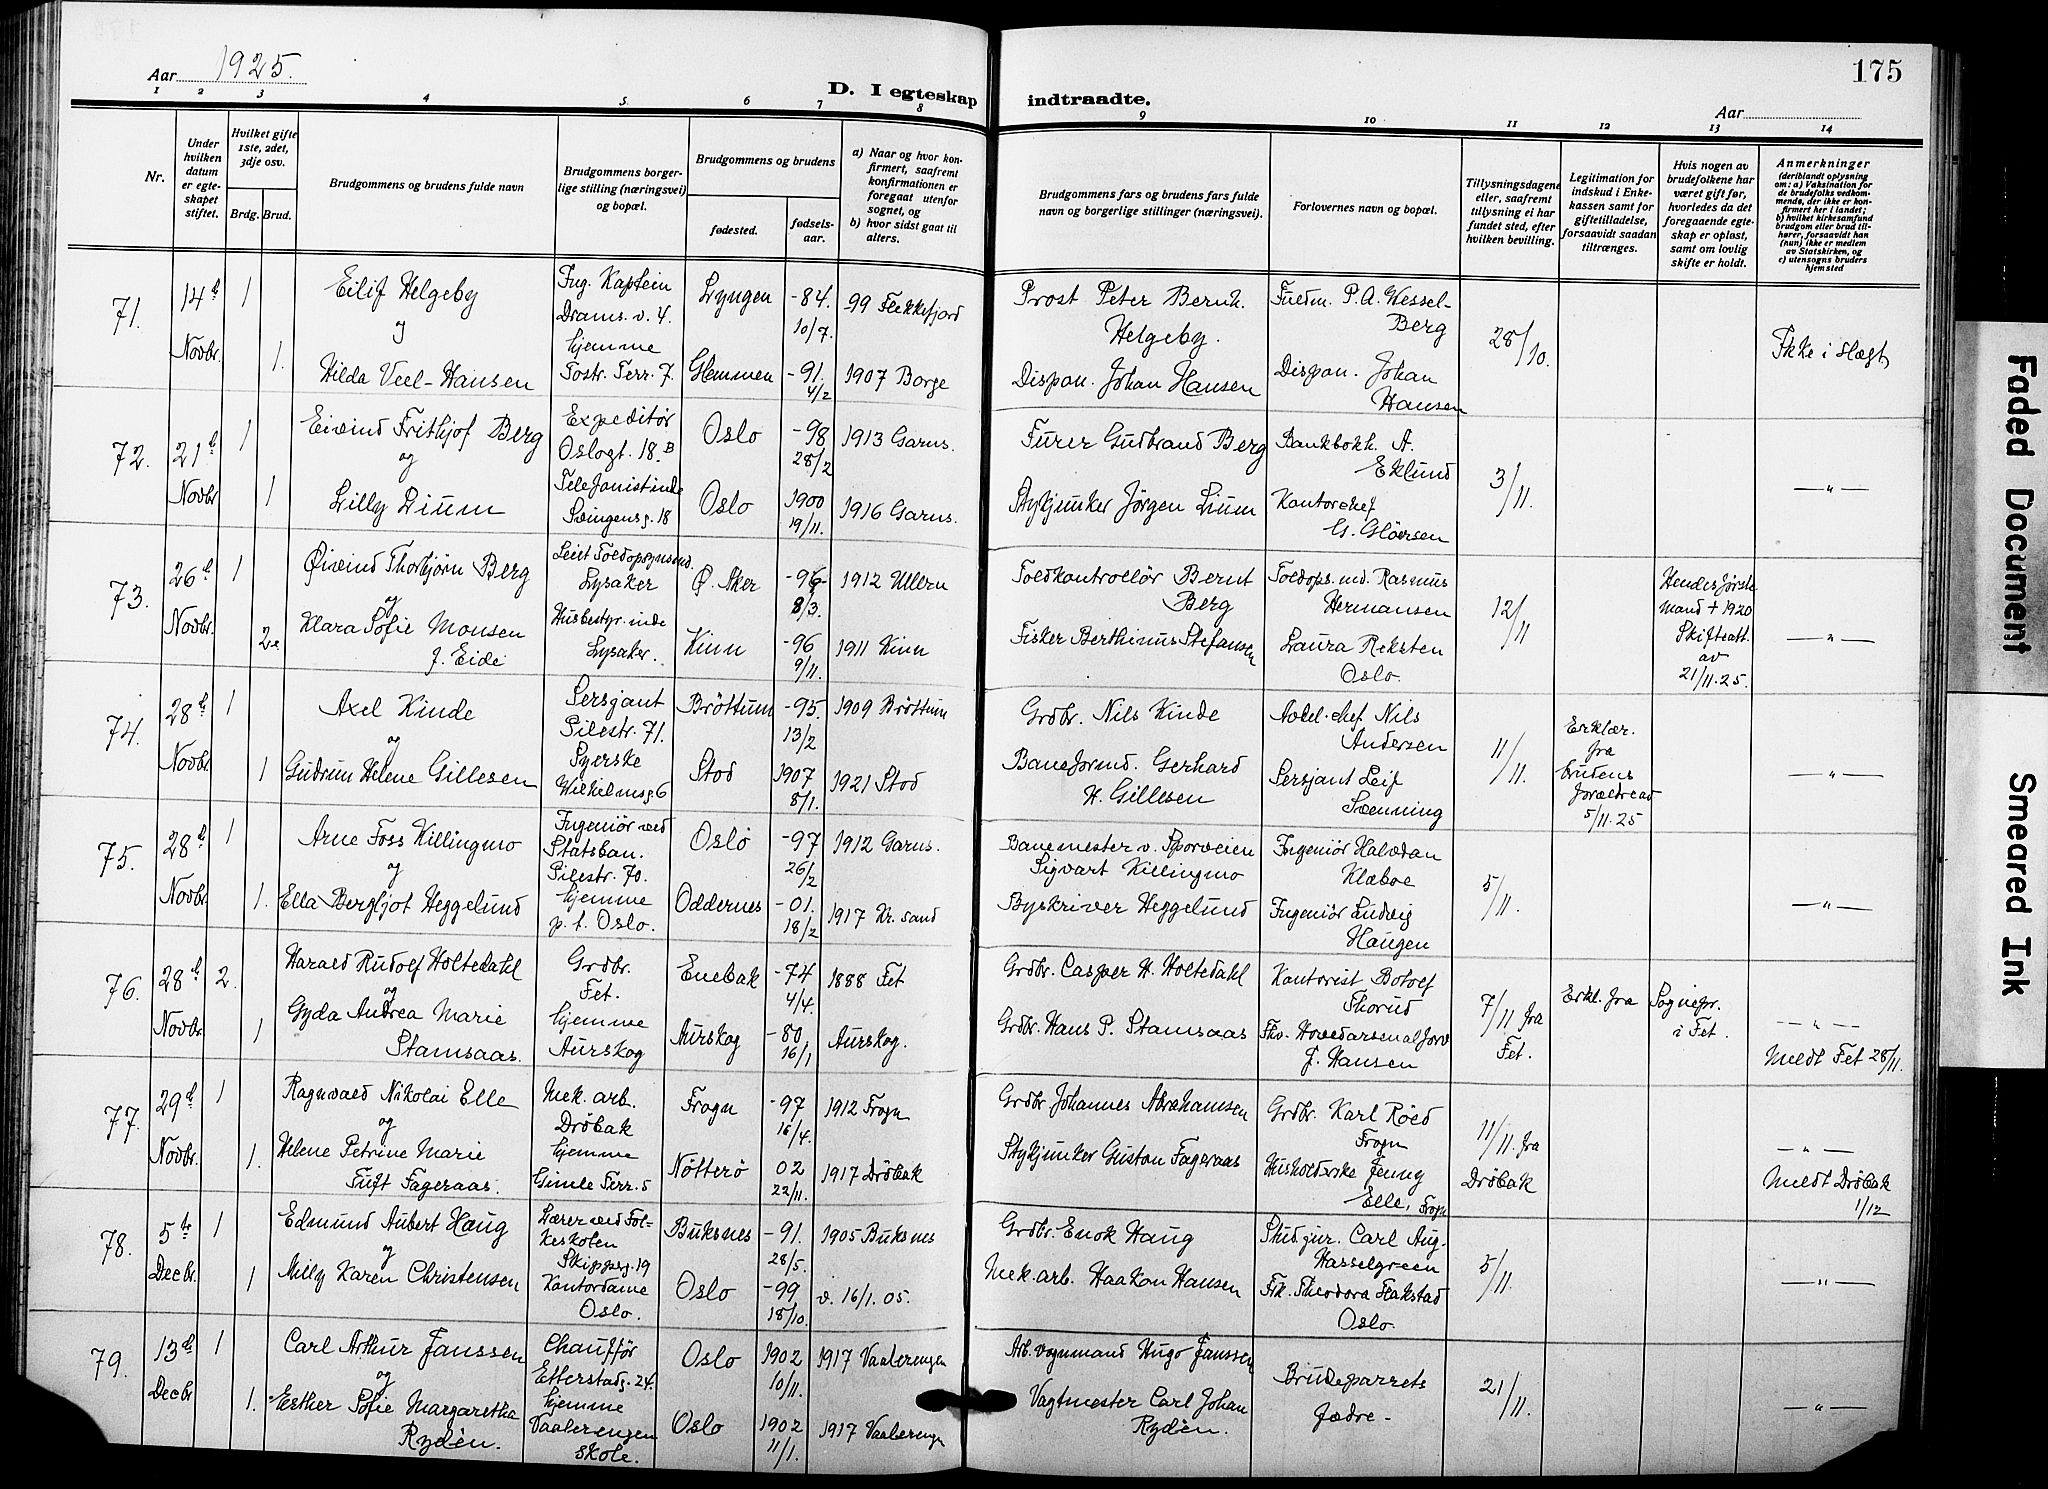 Aar 1925.
D. I egteskap indtraadte.
175
Aar
1 2 3 4 5. 6 7 8 9 10 11 12 13 14
Nr.
Under hvilken datum er egteskapet stiftet.
Hvilket gifte 1ste, 2det, 3dje osv.
Brdg. Brud.
Brudgommens og brudens fulde navn
Brudgommens borgerlige stilling (næringsvei) og bopæl.
Brudgommens og brudens
fødested.
fødselsaar.
a) Naar og hvor konfirmert, saafremt konfirmationen er foregaat utenfor sognet, og
b) hvor sidst gaat til alters.
Brudgommens fars og brudens fars fulde navn og borgerlige stillinger (næringsvei).
Forlovernes navn og bopæl.
Tillysningsdagene eller, saafremt tillysning ei har fundet sted, efter hvilken bevilling.
Legitimation for indskud i Enkekassen samt for giftetilladelse, forsaavidt saadan tiltrænges.
Hvis nogen av brudefolkene har været gift før, hvorledes da det foregaaende egteskap er opløst, samt om lovlig skifte er holdt.
Anmerkninger (deriblandt oplysning om: a) Vaksination for de brudefolks vedkommende, der ikke er konfirmert her i landet; b) hvilket kirkesamfund brudgom eller brud tilhører, forsaavidt han (hun) ikke er medlem av Statskirken, og c) utensogns bruders hjemsted
71. 14d Novbr. 1 1.
Eilif Helgeby
og
Hilda Veel-Hansen
Ing. Kaptein
Drams. v. 4.
hjemme
Tostr. Terr. 7.
Lyngen -84. 10/7. 99 Flekkefjord
Glemmen -91. 4/2 1907 Borge
Prost Peter Bernh. Helgeby.
Dispon. Johan Hansen
Fuldm. P. A. Wessel-Berg
Dispon. Johan Hansen
28/10.
Ikke i slegt
72. 21d Novbr. 1 1
Eivind Frithjof Berg
og
Lilly Lium
Expeditør
Oslogt. 18.B
Telefonistinde
Svingensg. 18
Oslo -98 28/2 1913 Garns.
Oslo 1900 19/11. 1916 Garns.
Furer Gudbrand Berg
Stykjunker Jørgen Lium
Bankbokh. A. Eklund
Kontorchef G. Gløersen
3/11.
— " —
73. 26d Novbr. 1 2e
Øivind Thorbjørn Berg
og
Klara Sofie Monsen
f. Eide
Leiet Toldopsynsmd.
Lysaker
Husbestyrinde
Lysaker.
Ø. Aker -96 8/3. 1912 Ullern
Kinn -96 9/11. 1911 Kinn
Toldkontrollør Bernt Berg
Fisker Berthinus Stefansen
Toldops.md. Rasmus Hermansen
Laura Reksten Oslo.
12/11
Hendes første mand + 1920
Skifteatt. av 21/11.25.
— " —
74. 28d Novbr. 1 1
Axel Kinde
og
Gudrun Helene Gillesen
Sersjant
Pilestr. 71.
Syerske
Wilhelmsg 6
Brøttum -95. 13/2 1909 Brøttum
Stod 1907 8/1. 1921 Stod
Grdbr. Nils Kinde
Baneformd. Gerhard H. Gillesen
Avdel.chef Nils Andersen
Sersjant Leif Svenning
11/11.
Erklær. fra brudens forældre ad 5/11.25
— " —
75. 28d Novbr. 1 1.
Arne Foss Killingmo
og
Ella Bergljot Heggelund
Ingeniør ved
Statsban.
Pilestr. 70.
hjemme
p. t. Oslo.
Oslo -97 26/2 1912 Garns.
Oddernes -01. 18/2 1917 Kr. sand
Banemester v. Sporveien Sigvart Killingmo
Byskriver Heggelund
Ingeniør Halvdan Klæboe
Ingeniør Ludvig Haugen
5/11.
— " —
76. 28d Novbr. 2. 1
Harald Rudolf Holtedahl
og
Gyda Andrea Marie
Stamsaas.
Grdbr.
Fet.
hjemme
Aurskog
Enebak -74 4/4. 1888 Fet
Aurskog -80 16/1 Aurskog.
Grdbr. Casper H. Holtedahl
Grdbr. Hans P. Stamsaas
Kontorist Botolf Thorud
Fhv. Hovedarsenalforv J. Hansen
7/11 fra Fet.
Erkl. fra Sognepr. i Fet.
— " —
Meldt Fet 28/11.
77. 29d Novbr. 1 1.
Ragnvald Nikolai Elle
og
Helene Petrine Marie
Tuft Fageraas.
Mek. arb.
Drøbak
hjemme
Gimle Terr. 5
Frogn -97 16/4. 1912 Frogn
Nøtterø 02 22/11. 1917 Drøbak
Grdbr Johannes Abrahamsen
Stykjunker Gustav Fageraas
Grdbr. Karl Røed Frogn
Husholderske Jenny Elle, Frogn
11/11. fra Drøbak
— " —
Meldt Drøbak 1/12
78. 5te Decbr. 1 1
Edmund Aubert Haug
og
Milly Karen Christensen
Lærer ved Fol-
keskolen
Skipperg. 19
Kontordame
Oslo.
Buksnes -91. 28/5. 1905 Buksnes
Oslo -99 18/10. v. 16/1. 05.
Grdbr. Enok Haug
Mek. arb. Haakon Hansen
Stud. jur. Carl Aug. Hasselgreen
Frk. Theodora Flakstad Oslo.
5/11.
— " —
79. 13de Decbr 1 1.
Carl Arthur Janssen
og
Esther Sofie Margaretha
Rydèn.
Chauffør
Etterstadg. 24.
hjemme
Vaalerengen
skole.
Oslo 1902 10/11. 1917 Vaalerengen
Oslo 1902 11/1. 1917 Vaalerengen
Arb. vognmand Hugo Janssen
Vagtmester Carl Johan Rydèn.
Brudeparrets fædre -
21/11.
— " —
Faded Document
Smeared Ink